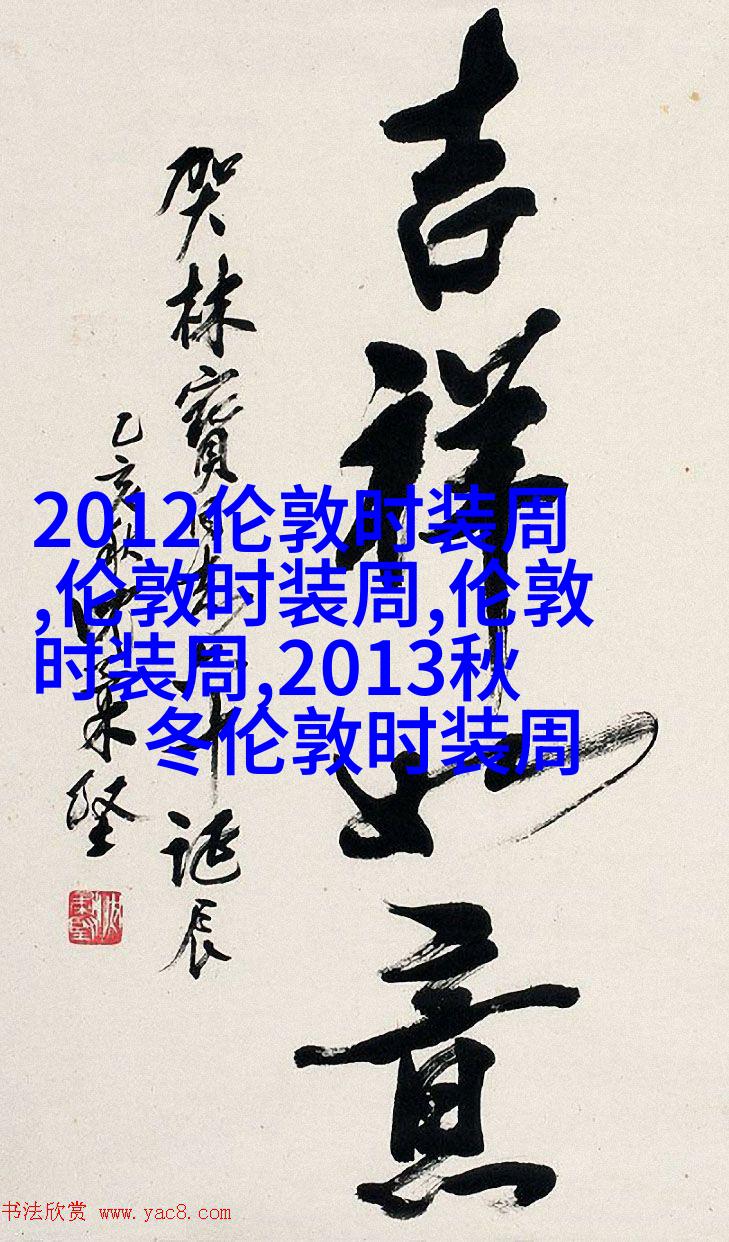 吉祥如意
贺林宝
诞辰
乙亥秋
坚
2012伦敦时装周
,伦敦时装周,伦敦
时装周,2013秋
冬伦敦时装周
书法欣赏 www.yac8.com